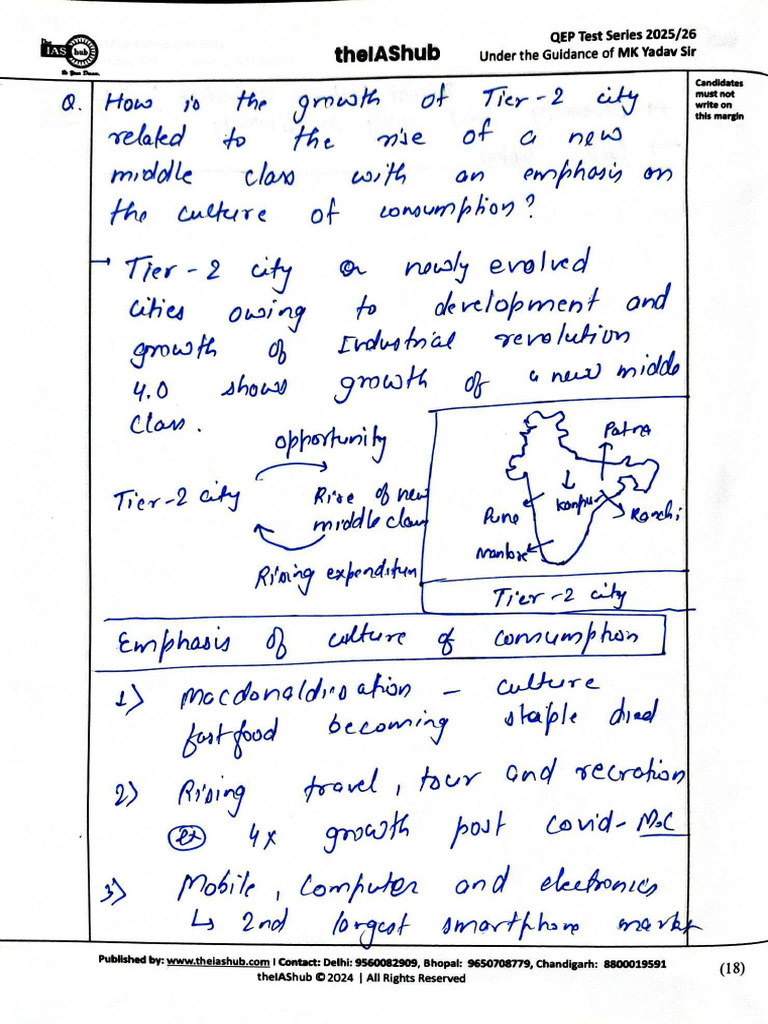 The IAS hub
In Your Dream
theIAShub
QEP Test Series 2025/26
Under the Guidance of MK Yadav Sir
Candidates
must not
write on
this margin
Q. How is the growth of Tier-2 city
related to the rise of a new
middle class with an emphasis on
the culture of consumption?
→ Tier-2 city or newly evolved
cities owing to development and
growth of Industrial revolution
4.0 shows growth of a new middle
class.
opportunity
Tier-2 city
Rise of new
middle class
Rising expenditure
Patna
Kanpur
Ranchi
Pune
Tier-2 city
Emphasis of culture of consumption
1) Macdonaldisation - culture
fast food becoming staple
2) Rising travel, tour and recration
ex 4x growth post covid-
3) Mobile, computer and electronics
↳ 2nd largest smartphone market
Published by: www.theiashub.com I Contact: Delhi: 9560082909, Bhopal: 9650708779, Chandigarh: 8800019591
theIAShub © 2024 | All Rights Reserved
(18)